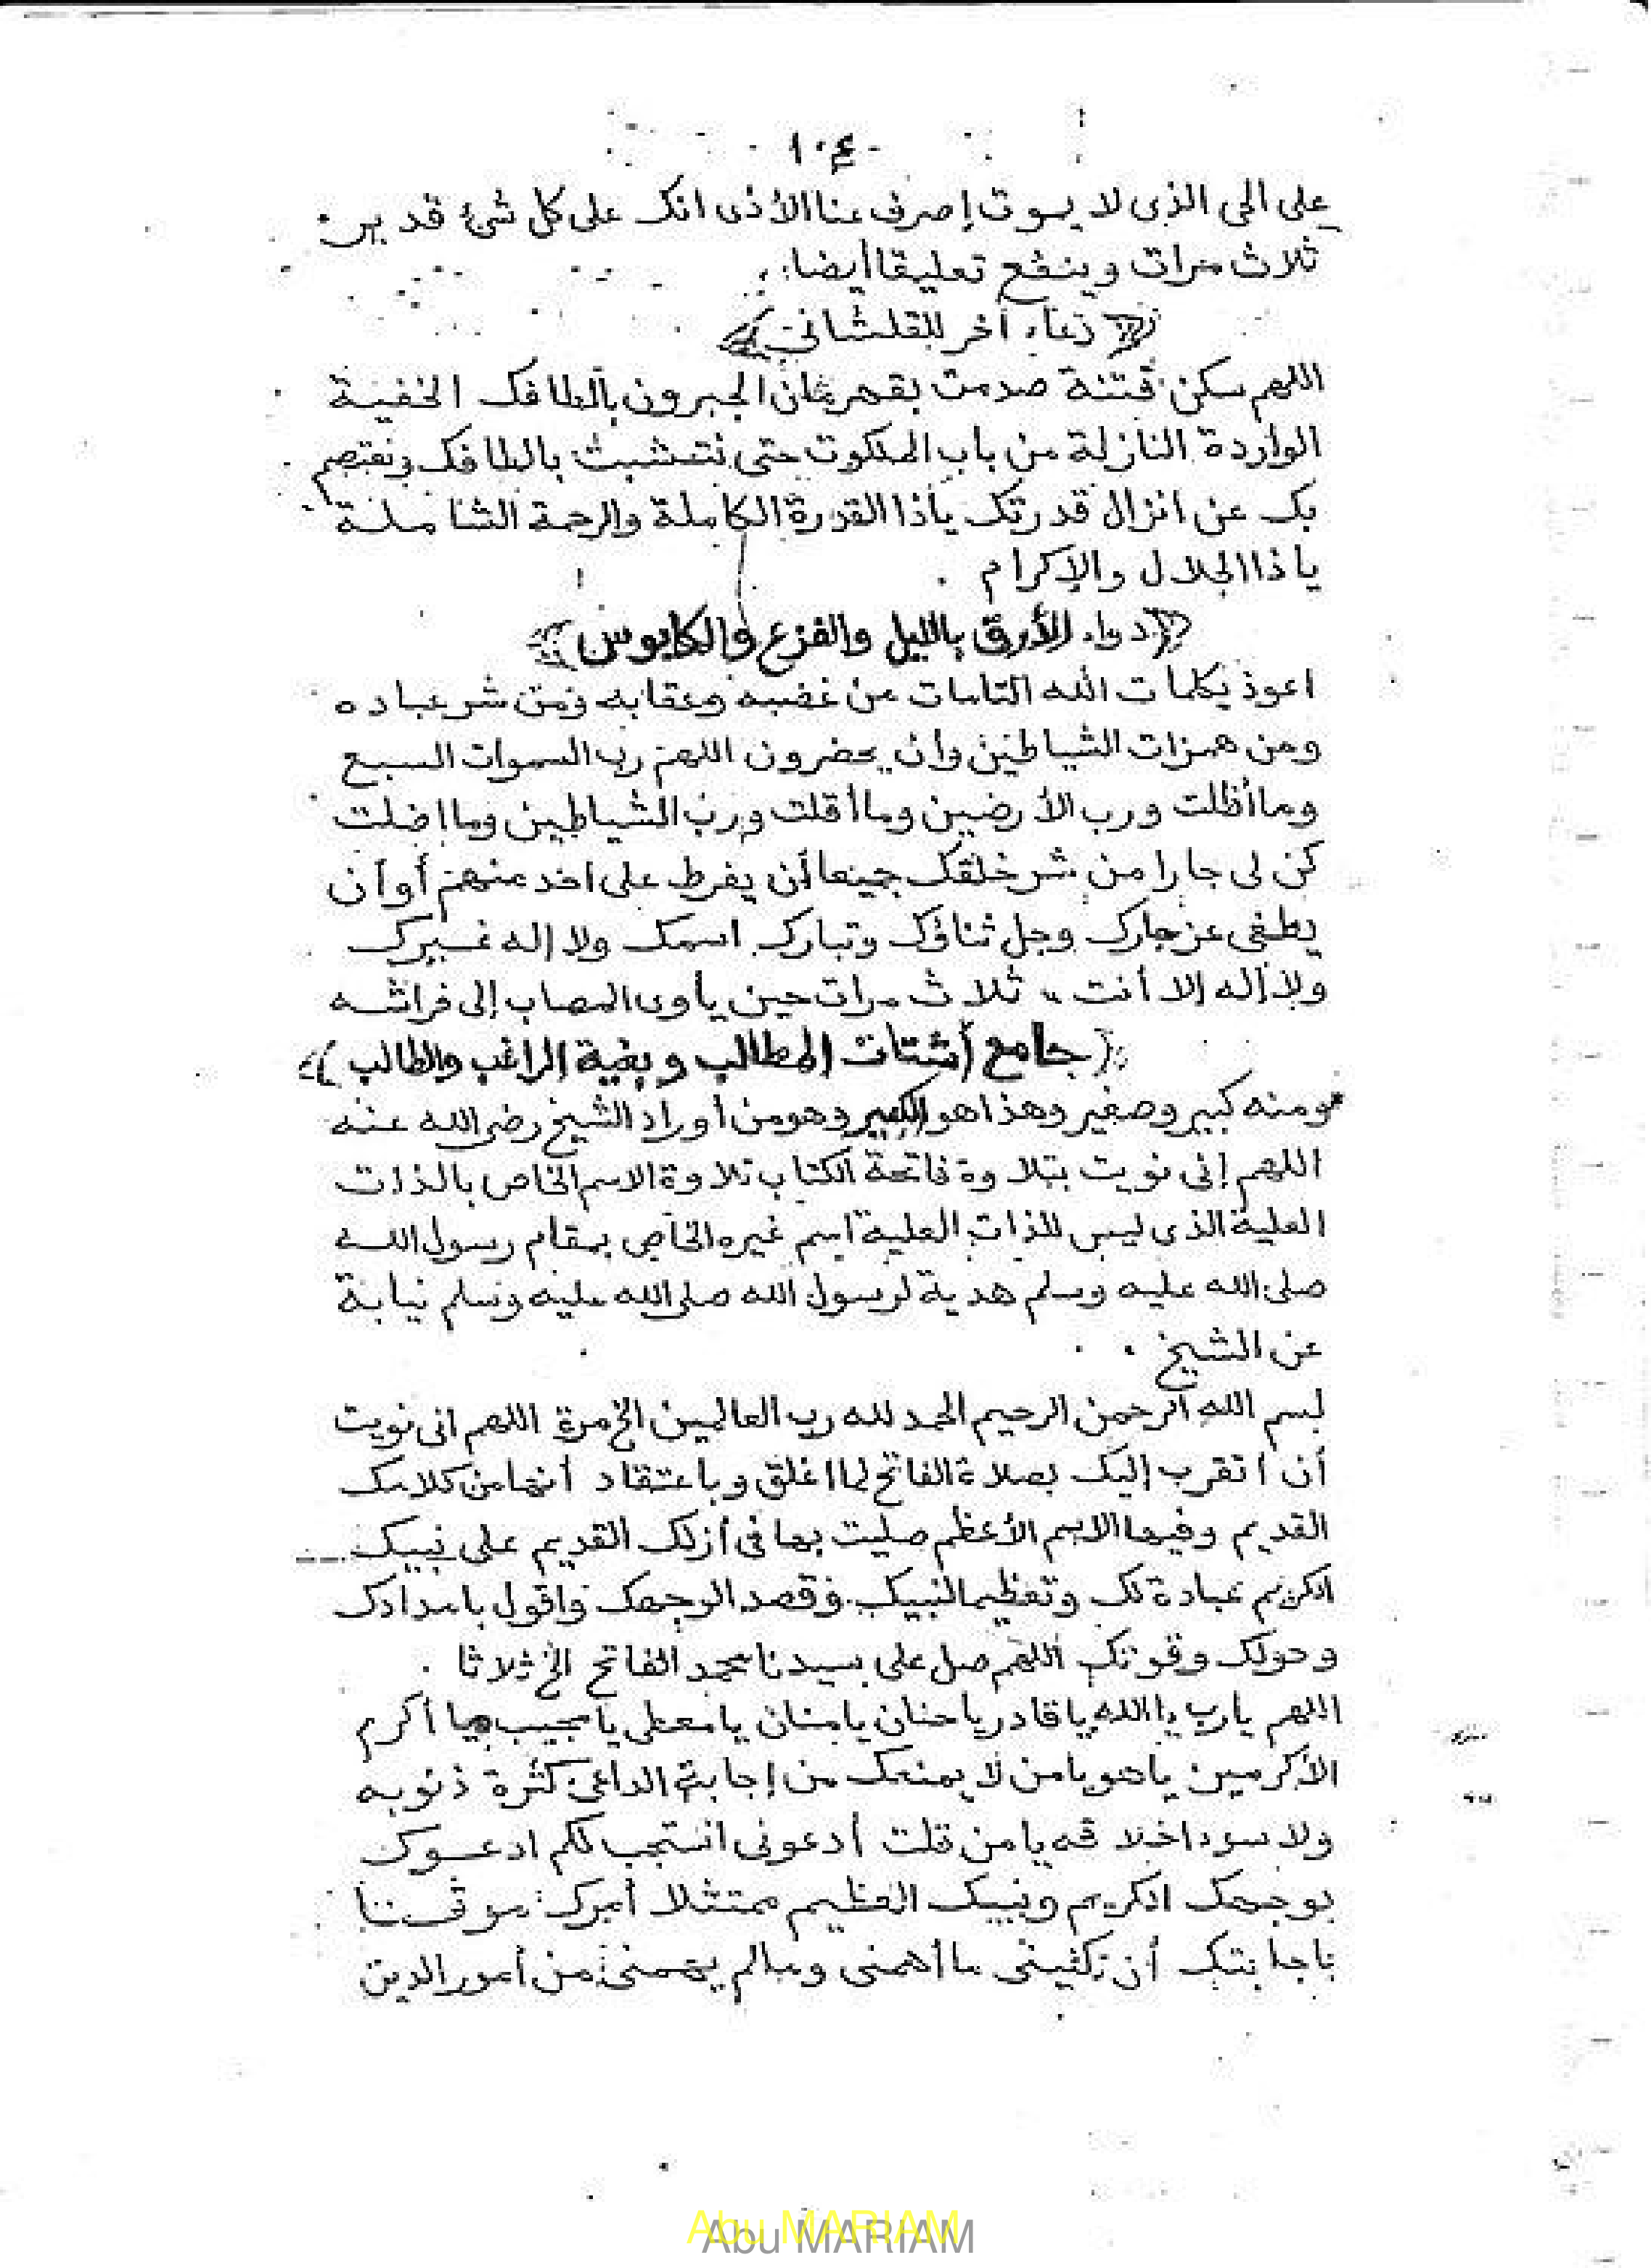 - ١٠٤ -
على الحى الذى لا يموت إصرف عنا الأذى انك على كل شئ قدير
ثلاث مرات وينفع تعليقا أيضا
« دعاء آخر للقلشانى »
اللهم سكن فتنة صدمت بقهرمان الجبروت بألطافك الخفية
الواردة النازلة من باب الملكوت حتى نتشبث بالطافك ونعتصم
بك عن انزال قدرتك ياذا القدرة الكاملة والرحمة الشاملة
ياذا الجلال والإكرام .
« دواء الأرق بالليل والفزع والكابوس »
اعوذ بكلمات الله التامات من غضبه وعقابه ومن شر عباده
ومن همزات الشياطين وأن يحضرون اللهم رب السموات السبع
وما أظلت ورب الأرضين وما أقلت ورب الشياطين وما اضلت
كن لى جارا من شر خلقك جميعا أن يفرط على احد منهم أو أن
يطغى عز جارك وجل ثناؤك وتبارك اسمك ولا إله غيرك
ولا إله إلا أنت ،، ثلاث مرات حين يأوى المصاب إلى فراشه
( جامع أشتات المطالب وبغية الراغب والطالب )
ومنه كبير وصغير وهذا هو الكبير وهو من أوراد الشيخ رضى الله عنه
اللهم إنى نويت بتلاوة فاتحة الكتاب تلاوة الاسم الخاص بالذات
العلية الذى ليس للذات العلية اسم غيره الخاص بمقام رسول الله
صلى الله عليه وسلم هدية لرسول الله صلى الله عليه وسلم نيابة
عن الشيخ . .
بسم الله الرحمن الرحيم الحمد لله رب العالمين الخ مرة اللهم انى نويت
أن اتقرب إليك بصلاة الفاتح لما اغلق وباعتقاد أنها من كلامك
القديم وفيها الاسم الأعظم صليت بها فى أزلك القديم على نبيك
الكريم عبادة لك وتعظيما لنبيك وقصد الوجهك واقول بامدادك
وحولك وقوتك اللهم صل على سيدنا محمد الفاتح الخ ثلاثا .
اللهم يارب يا الله يا قادر يا حنان يا منان يا معطى يا مجيب يا أكرم
الأكرمين ياهو يا من لا يمنعك من إجابة الداعى كثرة ذنوبه
ولا سوء اخلاقه يا من قلت أدعونى استجب لكم ادعوك
بوجهك الكريم وبنبيك العظيم ممتثلا أمرك موقنا
باجابتك أن تكفينى ما أهمنى ومالم يهمنى من أمور الدين
Abu MARIAM